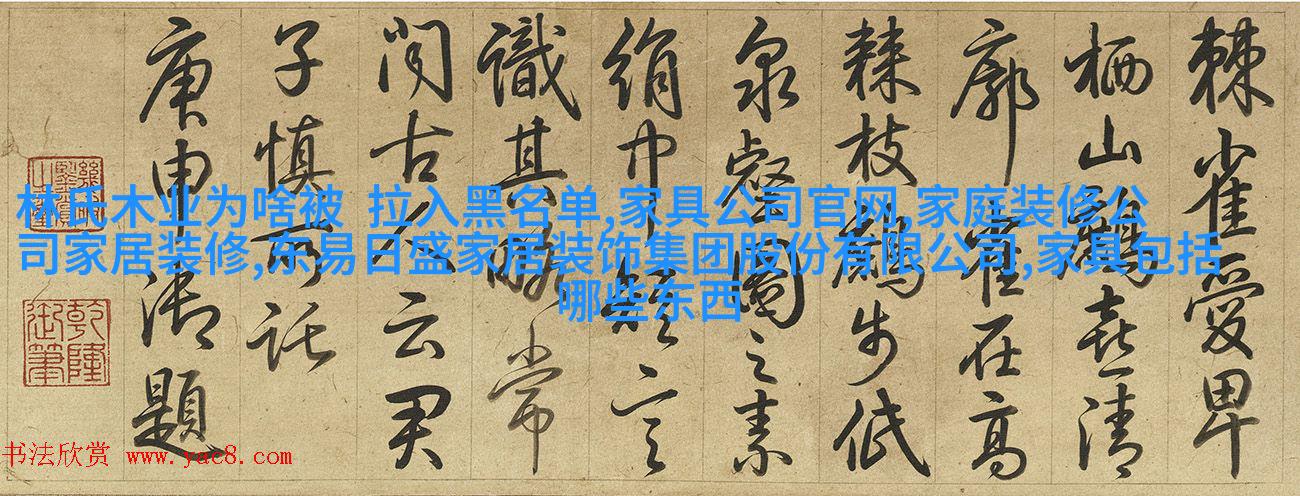 棘雀愛卑
栖山鷴喜清
廓雀在高
棘枝鷴步低
泉壑圖之素
絹巾言
識其略常
聞古人云君
子慎所託
庚申御題
乾隆御筆
林氏木业为啥被 拉入黑名单,家具公司官网,家庭装修公
司家居装修,东易日盛家居装饰集团股份有限公司,家具包括
哪些东西
书法欣赏 www.yac8.com